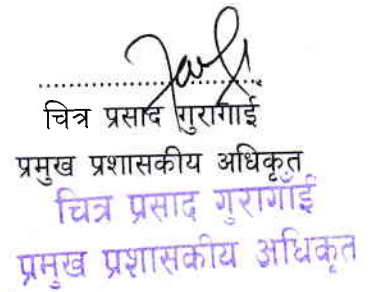 ........................................
चित्र प्रसाद गुरागाई
प्रमुख प्रशासकीय अधिकृत
चित्र प्रसाद गुरागाँई
प्रमुख प्रशासकीय अधिकृत